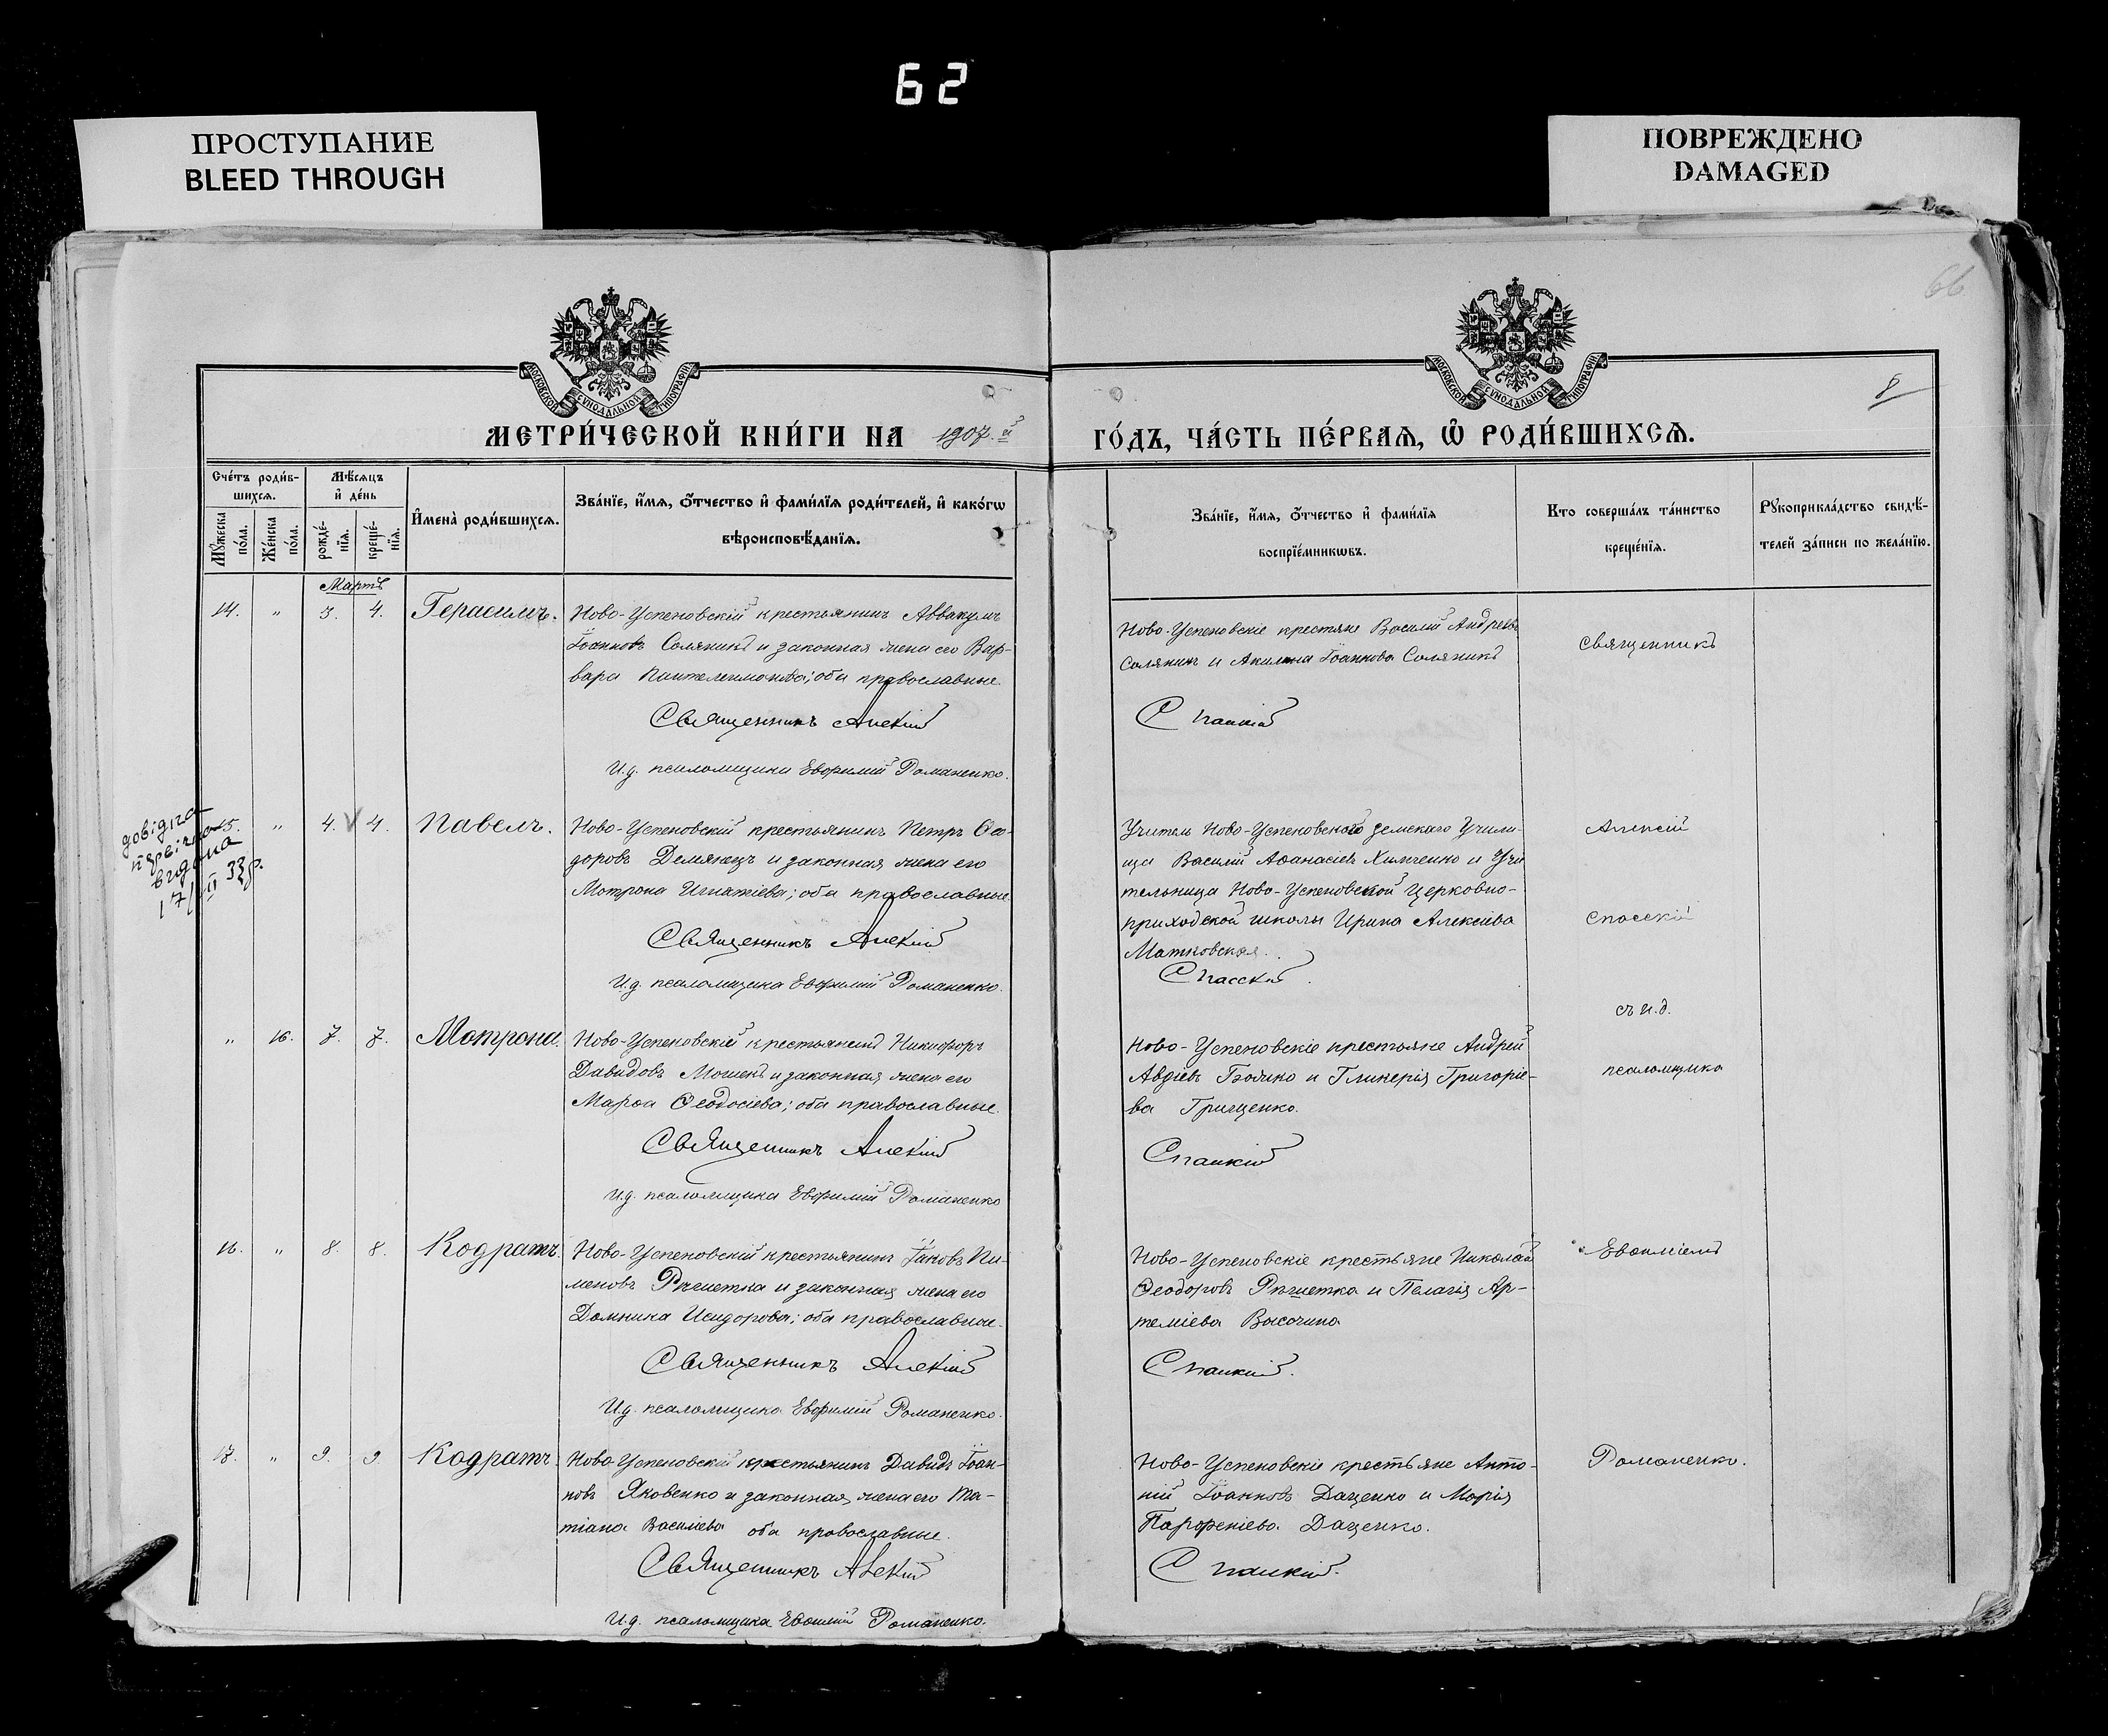 62
ПРОСТУПАНИЕ
BLEED THROUGH
ПОВРЕЖДЕНО
DAMAGED
66
8
МОСКОВСКОЙ СѴНОДАЛЬНОЙ ТИПОГРАФІИ
МОСКОВСКОЙ СѴНОДАЛЬНОЙ ТИПОГРАФІИ
МЕТРИ́ЧЕСКОЙ КНИ́ГИ НА 1907.й
ГО́ДЪ, ЧА́СТЬ ПЕ́РВАѦ, Ѡ РОДИ́ВШИХСѦ.
Сче́тъ роди́в-
шихсѧ.
Мꙋ́жеска
по́ла.
Же́нска
по́ла.
Мѣ́сѧцъ
и҆ де́нь
рожде́-
нїѧ.
креще́-
нїѧ.
И҆мена̀ роди́вшихсѧ.
Зва́нїе, и҆́мѧ, ѻ҆́тчество и҆ фами́лїѧ роди́телей, и҆ како́гѡ
вѣроисповѣ́данїѧ.
Зва́нїе, и҆́мѧ, ѻ҆́тчество и҆ фами́лїѧ
воспрїе́мникѡвъ.
Кто соверша́лъ та́инство
креще́нїѧ.
Рꙋкоприкла́дство свидѣ́-
телей за́писи по жела́нїю.
Мартъ
14. " 3. 4. Герасимъ.
Ново-Успеновскій крестьянинъ Аввакумъ
Іоанновъ Соляникъ и законная жена его Вар-
вара Пантелеимонова; оба православные.
Священникъ Алексій
И.д. псаломщика Евфимій Романенко.
Ново-Успеновскіе крестяне Василій Андреевъ
Соляникъ и Акилина Іоаннова Соляникъ
Спасскій
священникъ
довідка
вндана
17/ІІ 33р.
15. " 4. 4. Павелъ.
Ново-Успеновскій крестьянинъ Петръ Ѳео-
доровъ Демянецъ и законная жена его
Мотрона Игнатіева; оба православные.
Священникъ Алексій
И.д. псаломщика Евфимій Романенко.
Учитель Ново-Успеновского земскаго Учили-
ща Василій Аѳанасіевъ Химченко и Учи
тельница Ново-Успеновской Церковно-
приходской школы Ирина Алексіева
Матковская.
Спасскій
Алексій
Спасскій
съ и.д.
" 16. 7. 7. Мотрона.
Ново-Успеновскій крестьянинъ Никифоръ
Давидовъ Мошекъ и законная жена его
Марѳа Ѳеодосіева; оба православные.
Священникъ Алексій
И.д. псаломщика Евфимій Романенко
Ново-Успеновскіе крестьяне Андрей
Авдіевъ Бойко и Гликерія Григоріе-
ва Грищенко.
Спасскій
псаломщика
16. " 8. 8. Кодратъ.
Ново-Успеновскій крестьянинъ Іаковъ Пи-
меновъ Рѣшетка и законная жена его
Домника Исидорова; оба православные.
Священникъ Алексій
И.д. псаломщика Евфимій Романенко.
Ново-Успеновскіе крестьяне Николай
Ѳеодоровъ Рѣшетка и Пелагія Ар-
теміева Высочина
Спасскій.
Евѳиміемъ
17. " 9. 9. Кодратъ.
Ново-Успеновскій крестьянинъ Давидъ Іоан-
новъ Яковенко и законная жена его Та-
тіана Василіева оба православные.
Священникъ Алексій
И.д. псаломщика Евѳимій Романенко.
Ново-Успеновскіе крестьяне Анто-
ній Іоанновъ Даценко и Марія
Парфеніева Даценко.
Спасскій.
Романенко.